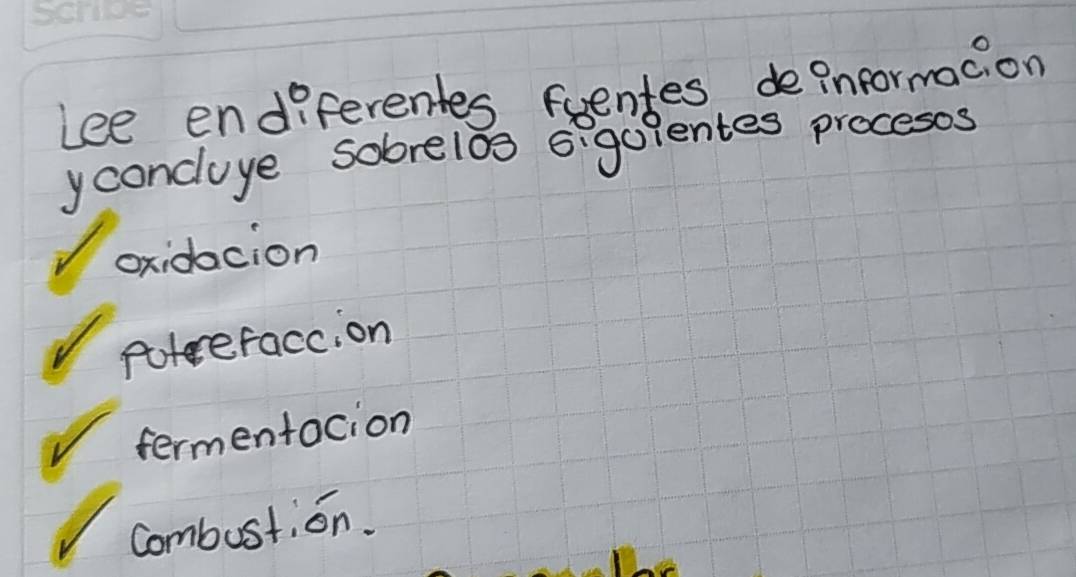 Scribe
Lee en diferentes fuentes de informacion
y concluye sobre los siguientes procesos
oxidacion
putrefaccion
fermentacion
combustión.